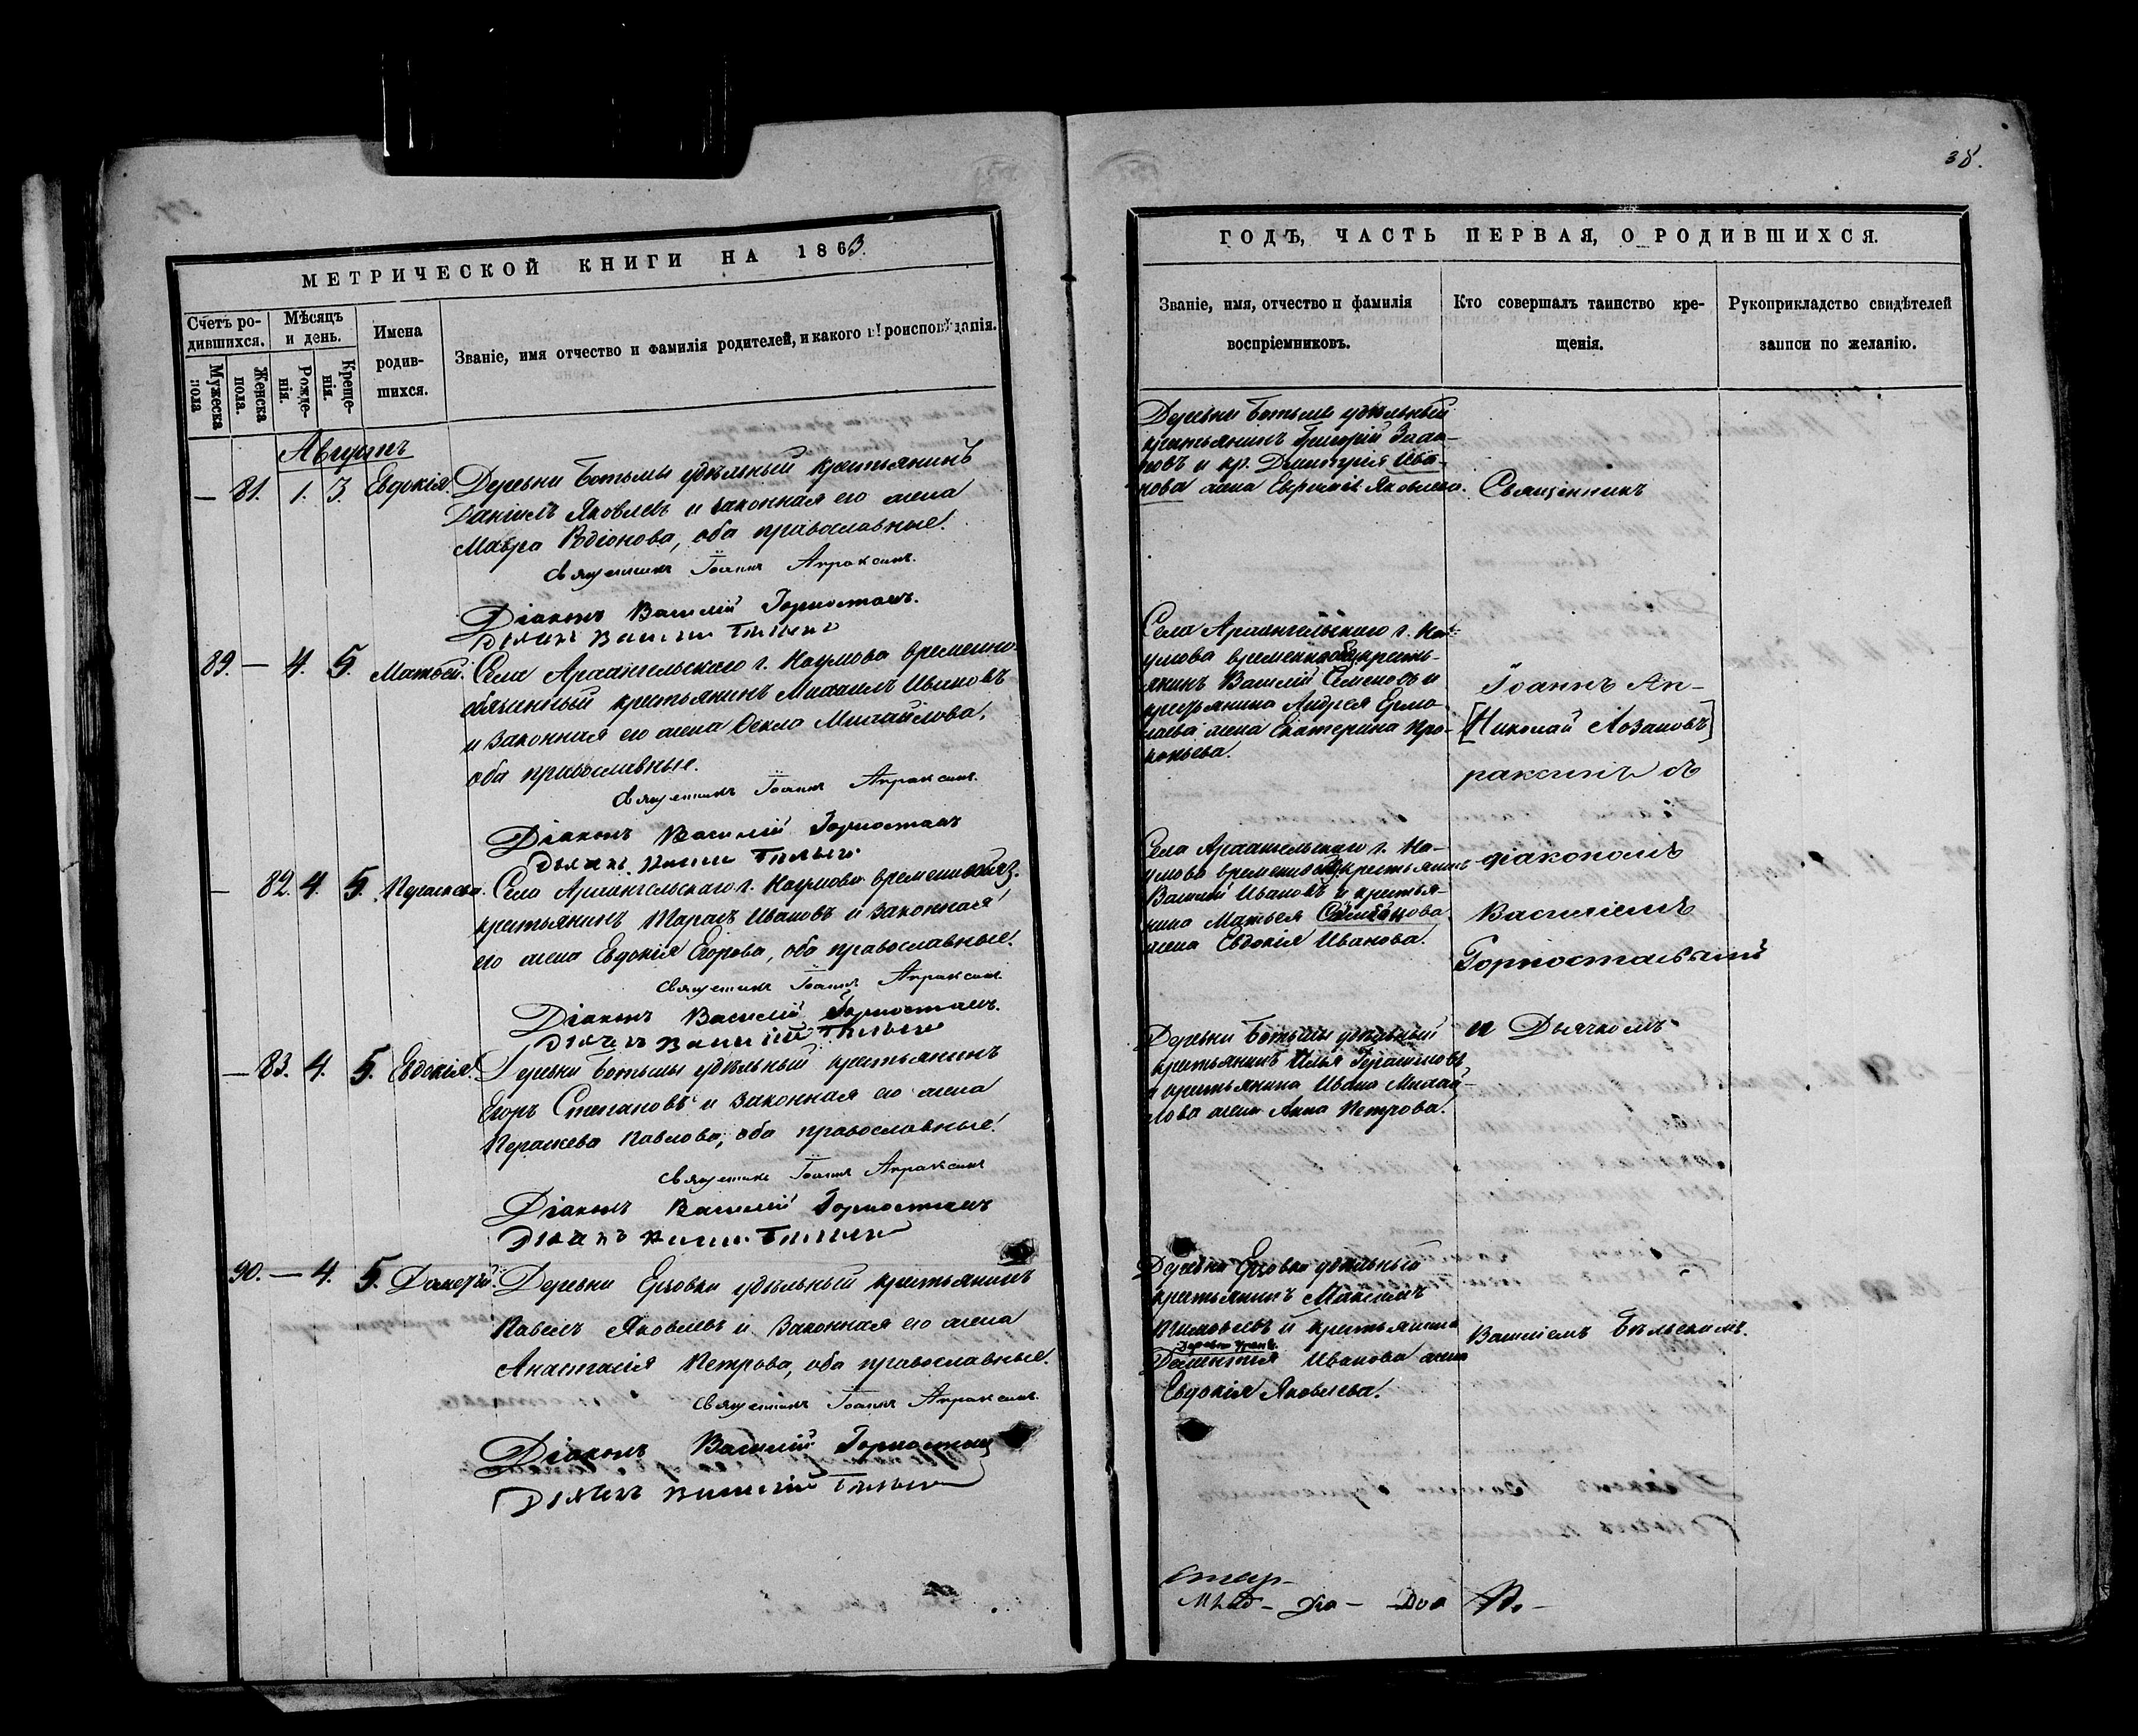 38.
МЕТРИЧЕСКОЙ КНИГИ НА 1863.
Счетъ ро-
дившихся.
Мужеска
пола
Женска
пола.
Мѣсяцъ
и день.
Рожде-
нія.
Креще-
нія.
Имена
родив-
шихся.
Званіе, имя отчество и фамилія родителей, и какого вѣроисповѣданія.
Августъ
— 81. 1. 3. Евдокія.
Деревни Ботьмы удѣльный крестьянинъ
Даніилъ Яковлевъ и законная его жена
Мавра Родіонова, оба православные.
Священникъ Іоаннъ Апраксинъ.
Діаконъ Василій Горностаевъ.
Дьячекъ Василій
89. — 4. 5. Матѳей.
Села Архангельскаго г. Наумова временно-
обязанный крестьянинъ Михаилъ Ивановъ
и законная его жена Ѳекла Михайлова,
оба православные.
Священникъ Іоаннъ Апраксинъ.
Діаконъ Василій Горностаевъ
Дьячекъ
— 82. 4. 5. Параскева.
Села Архангельскаго г. Наумова временнообяз.
крестьянинъ Тарасъ Ивановъ и законная
его жена Евдокія Егорова, оба православные.
Священникъ Іоаннъ Апраксинъ.
Діаконъ Василій Горностаевъ.
Дьячекъ Василій
— 83. 4. 5. Евдокія.
Деревни Ботьмы удѣльный крестьянинъ
Егоръ Степановъ и законная его жена
Параскева Павлова, оба православные.
Священникъ Іоаннъ Апраксинъ
Діаконъ Василій Горностаевъ
Дьячекъ
90. — 4. 5.
Деревни удѣльный крестьянинъ
Павелъ Яковлевъ и законная его жена
Анастасія Петрова, оба православные.
Священникъ Іоаннъ Апраксинъ.
Діаконъ Василій Горностаевъ
Дьячекъ Василій
ГОДЪ, ЧАСТЬ ПЕРВАЯ, О РОДИВШИХСЯ.
Званіе, имя, отчество и фамилія
воспріемниковъ.
Кто совершалъ таинство кре-
щенія.
Рукоприкладство свидѣтелей
записи по желанію.
Деревни Ботьмы удѣльный
крестьянинъ Григорій
и кр. Димитрія Ива-
нова жена Яковлева.
Села Архангельскаго г. На-
умова временнообяз. кресть-
янинъ Василій Семеновъ и
крестьянина Андрея Ерма-
лаева жена Екатерина Про-
копьева.
Села Архангельскаго г. На-
умова временнообяз. крестьянинъ
Василій Ивановъ и крестья-
нина Матѳея
жена Евдокія Иванова.
Деревни Ботьмы удѣльный
крестьянинъ Илья Герасимовъ
и крестьянина Ивана Михай-
лова жена Анна Петрова.
Деревни удѣльный
крестьянинъ Максимъ
и крестьянина
Иванова жена
Евдокія Яковлева.
Священникъ
Іоаннъ Ап-
[Николай Лозановъ]
раксинъ съ
діакономъ
Василіемъ
Горностаевымъ
и Дьячкомъ
Василіемъ Бѣльскимъ.